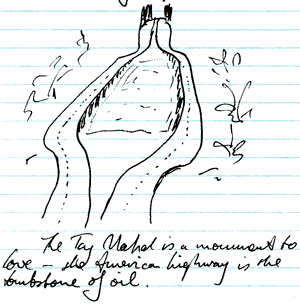 The Taj Mahal is a monument to
love – the American highway is the
tombstone of oil.